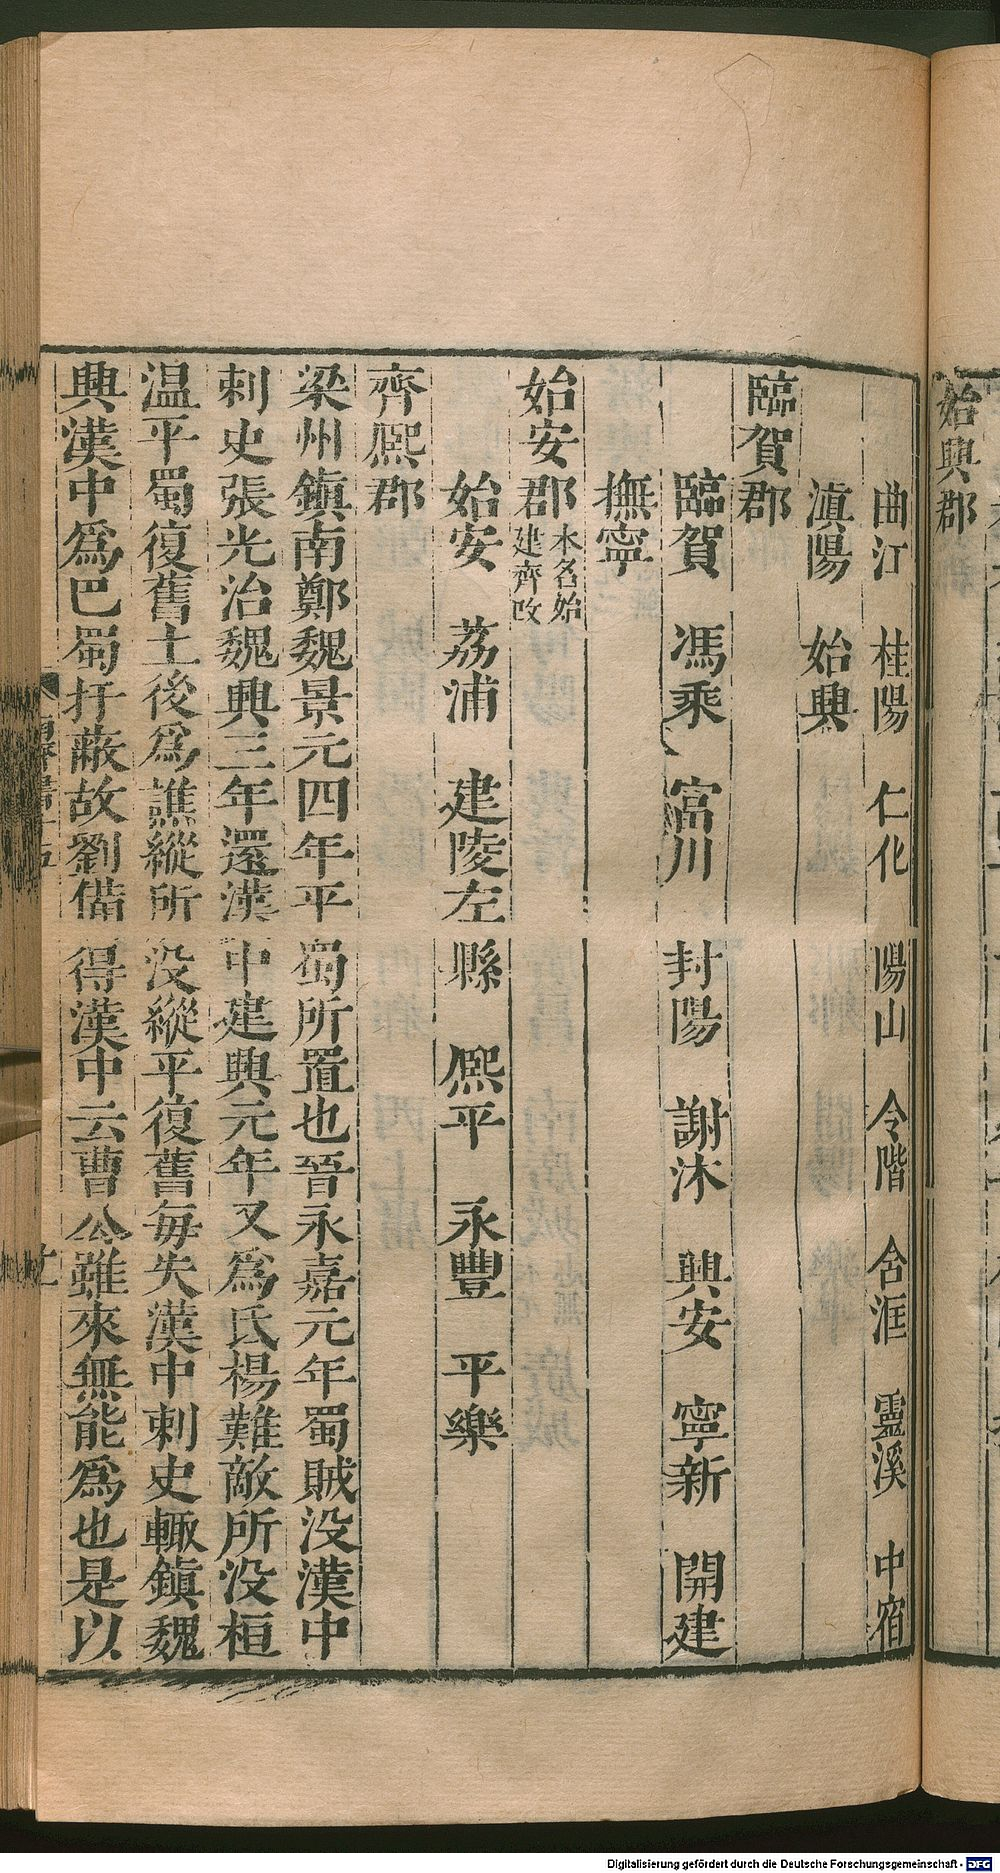 始興郡
曲江　桂陽　仁化　陽山　令階　含洭　靈溪　中宿
滇陽　始興
臨賀郡
臨賀　馮乘　富川　封陽　謝沐　興安　寧新　開建
撫寧
始安郡本名始建齊改
始安　荔浦　建陵左縣　熈平　永豐　平樂
齊熈郡
梁州鎮南鄭魏景元四年平蜀所置也晉永嘉元年蜀賊没漢中
刺史張光治魏興三年還漢中建興元年又爲氐楊難敵所没桓
温平蜀復舊土後爲譙縱所没縱平復舊每失漢中刺史輙鎮魏
興漢中爲巴蜀扞蔽故劉備得漢中云曹公雖來無能爲也是以
Digitalisierung gefördert durch die Deutsche Forschungsgemeinschaft - DFG